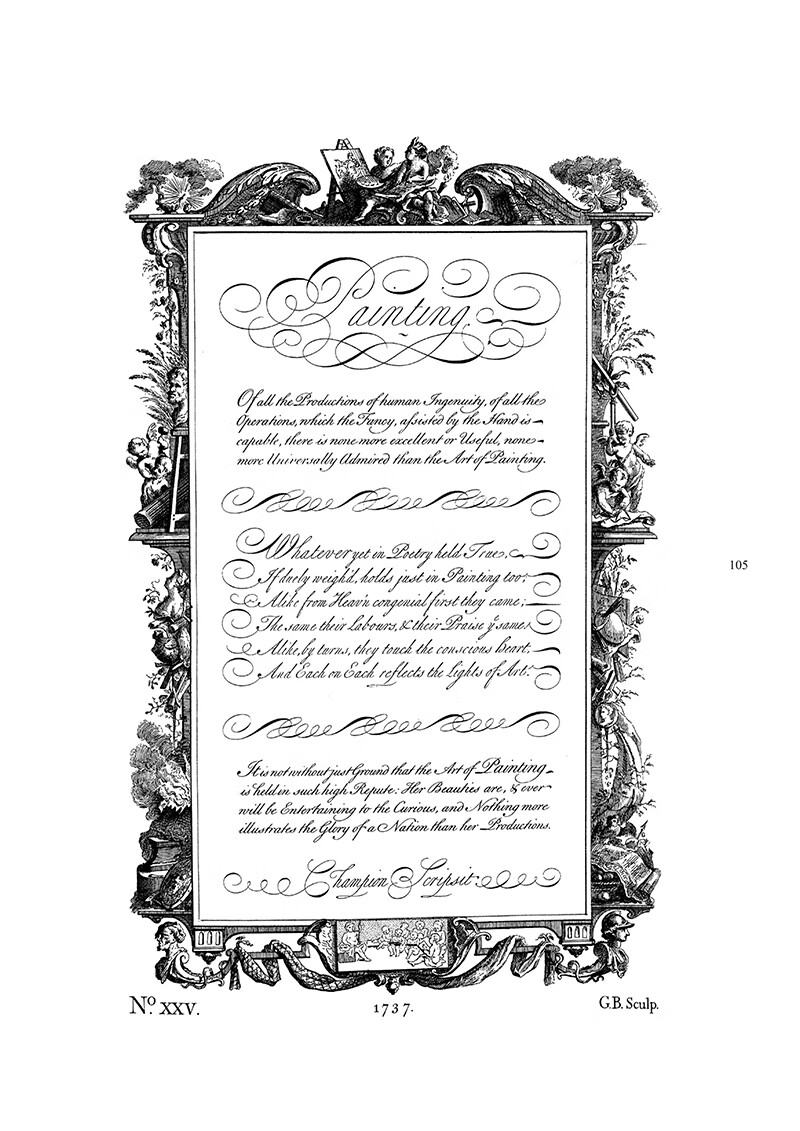 Painting.
Of all the Productions of human Ingenuity, of all the
Operations, which the Fancy, assisted by the Hand is
capable, there is none more excellent or Useful, none
more Universally Admired than the Art of Painting.
Whatever yet in Poetry held True,
If duely weigh'd, holds just in Painting too;
Alike from Heav'n congenial first they came;
The same their Labours, & their Praise yᵉ same,
Alike, by turns, they touch the conscious Heart,
And Each on Each reflects the Lights of Art.
It is not without just Ground that the Art of Painting
is held in such high Repute: Her Beauties are, & ever
will be Entertaining to the Curious, and Nothing more
illustrates the Glory of a Nation than her Productions.
Champion Scripsit.
105
No. XXV.
1737.
G.B. Sculp.